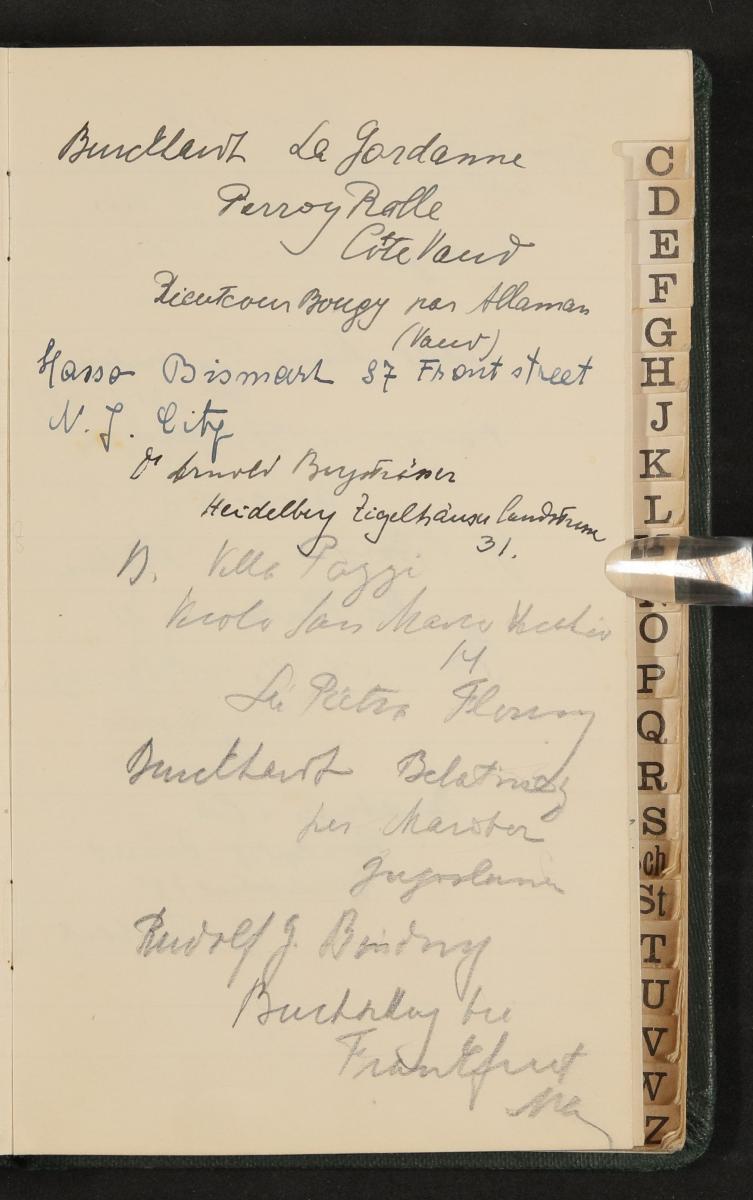 Burckhardt La Gordanne
Perroy Rolle
Côte Vaud
Bougy par Allaman
(Vaud)
Hasso Bismark 87 Front street
N. J. City
Dr Arnold Bergsträsser
Heidelberg Zigelhäuser Landstrasse
31.
B. Villa Pozzi
Vicolo San Marco Vecchio
14
Pietra Florenz
Burckhardt
per Maribor
Jugoslavien
Rudolf G. Binding
Buchschlag bei
Frankfurt
C
D
E
F
G
H
J
K
L
O
P
Q
R
S
Sch
St
T
U
V
W
Z